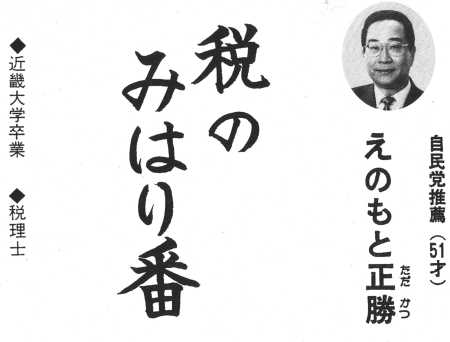 自民党推薦（51才）
えのもと正勝
ただ かつ
税の
みはり番
◆近畿大学卒業 ◆税理士